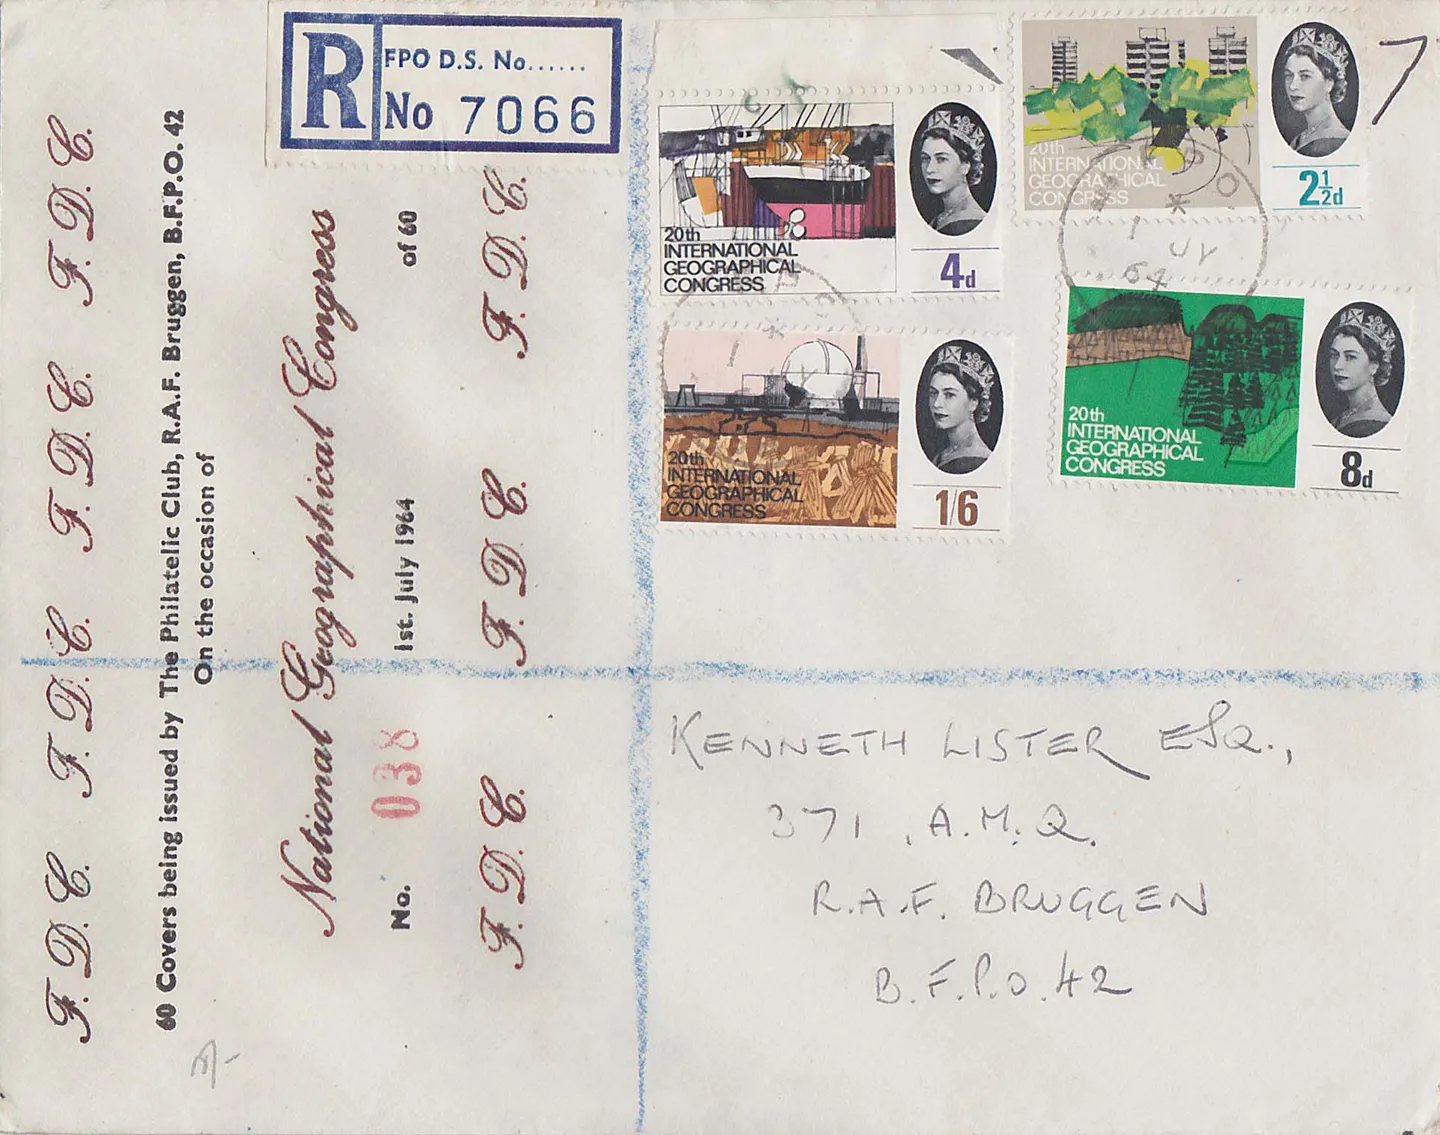 R FPO D.S. No......
No 7066
20th
INTERNATIONAL
GEOGRAPHICAL
CONGRESS
4d
20th
INTERNATIONAL
GEOGRAPHICAL
CONGRESS
2½d
7
20th
INTERNATIONAL
GEOGRAPHICAL
CONGRESS
1/6
20th
INTERNATIONAL
GEOGRAPHICAL
CONGRESS
8d
1 JY
64
F.D.C. F.D.C. F.D.C. F.D.C. F.D.C.
60 Covers being issued by The Philatelic Club, R.A.F. Bruggen, B.F.P.O. 42
On the occasion of
National Geographical Congress
No. 038 1st. July 1964 of 60
F.D.C. F.D.C. F.D.C. F.D.C.
KENNETH LISTER ESQ.,
371, A.M.Q.
R.A.F. BRUGGEN
B.F.P.O. 42